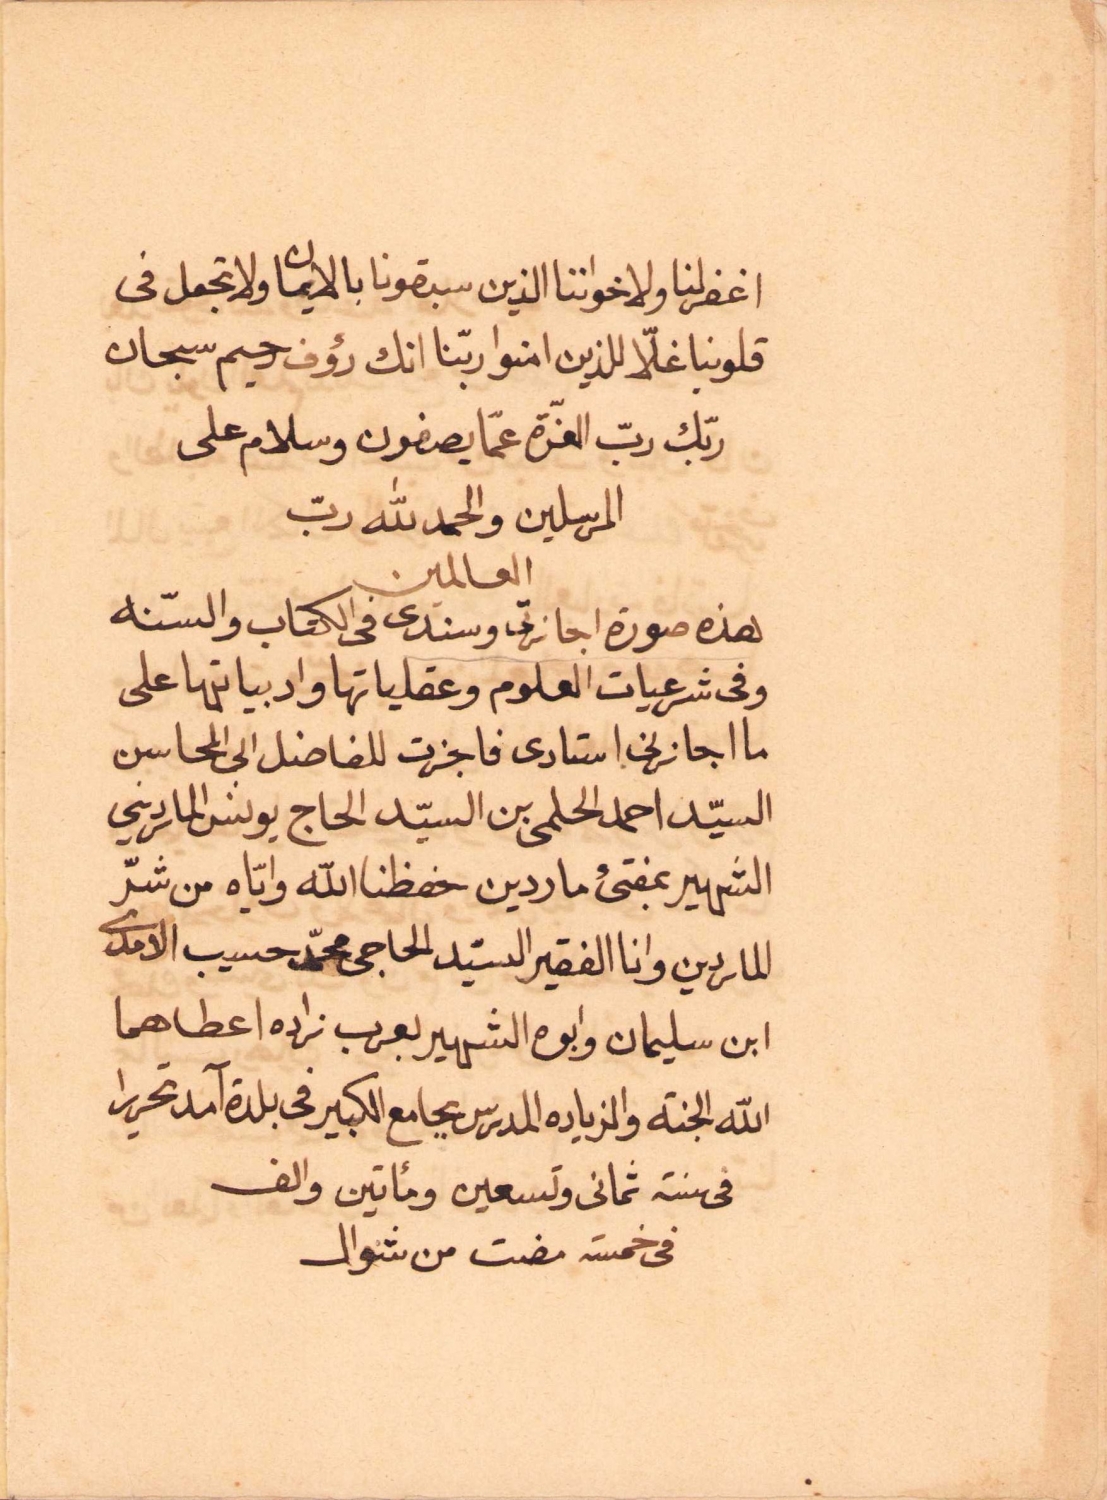 اغفرلنا ولاخواننا الذين سبقونا بالايمان ولاتجعل فى
قلوبنا غلّا للذين امنوا ربّنا انك رؤف رحيم سبحان
ربّك ربّ العزّة عمّا يصفون وسلام على
المرسلين والحمد لله ربّ
العالمين
هذه صورة اجازتى وسندى فى الكتاب والسّنه
وفى شرعيات العلوم وعقلياتها وادبياتها على
ما اجازنى استادى فاجزت للفاضل الى المحاسن
السيّد احمد الحلمى بن السيّد الحاج يونس الماردينى
الشهير بمفتىء ماردين حفظنا الله وايّاه من شرّ
الماردين وانا الفقير السيّد الحاجى محمّد حسيب الامدى
ابن سليمان وابوه الشهير بعرب زاده اعطاهما
الله الجنته والزياده المدرس بجامع الكبير فى بلدة آمد تحريرا
فى سنته ثمانى وتسعين ومأتين والف
فى خمسته مضت من شوال